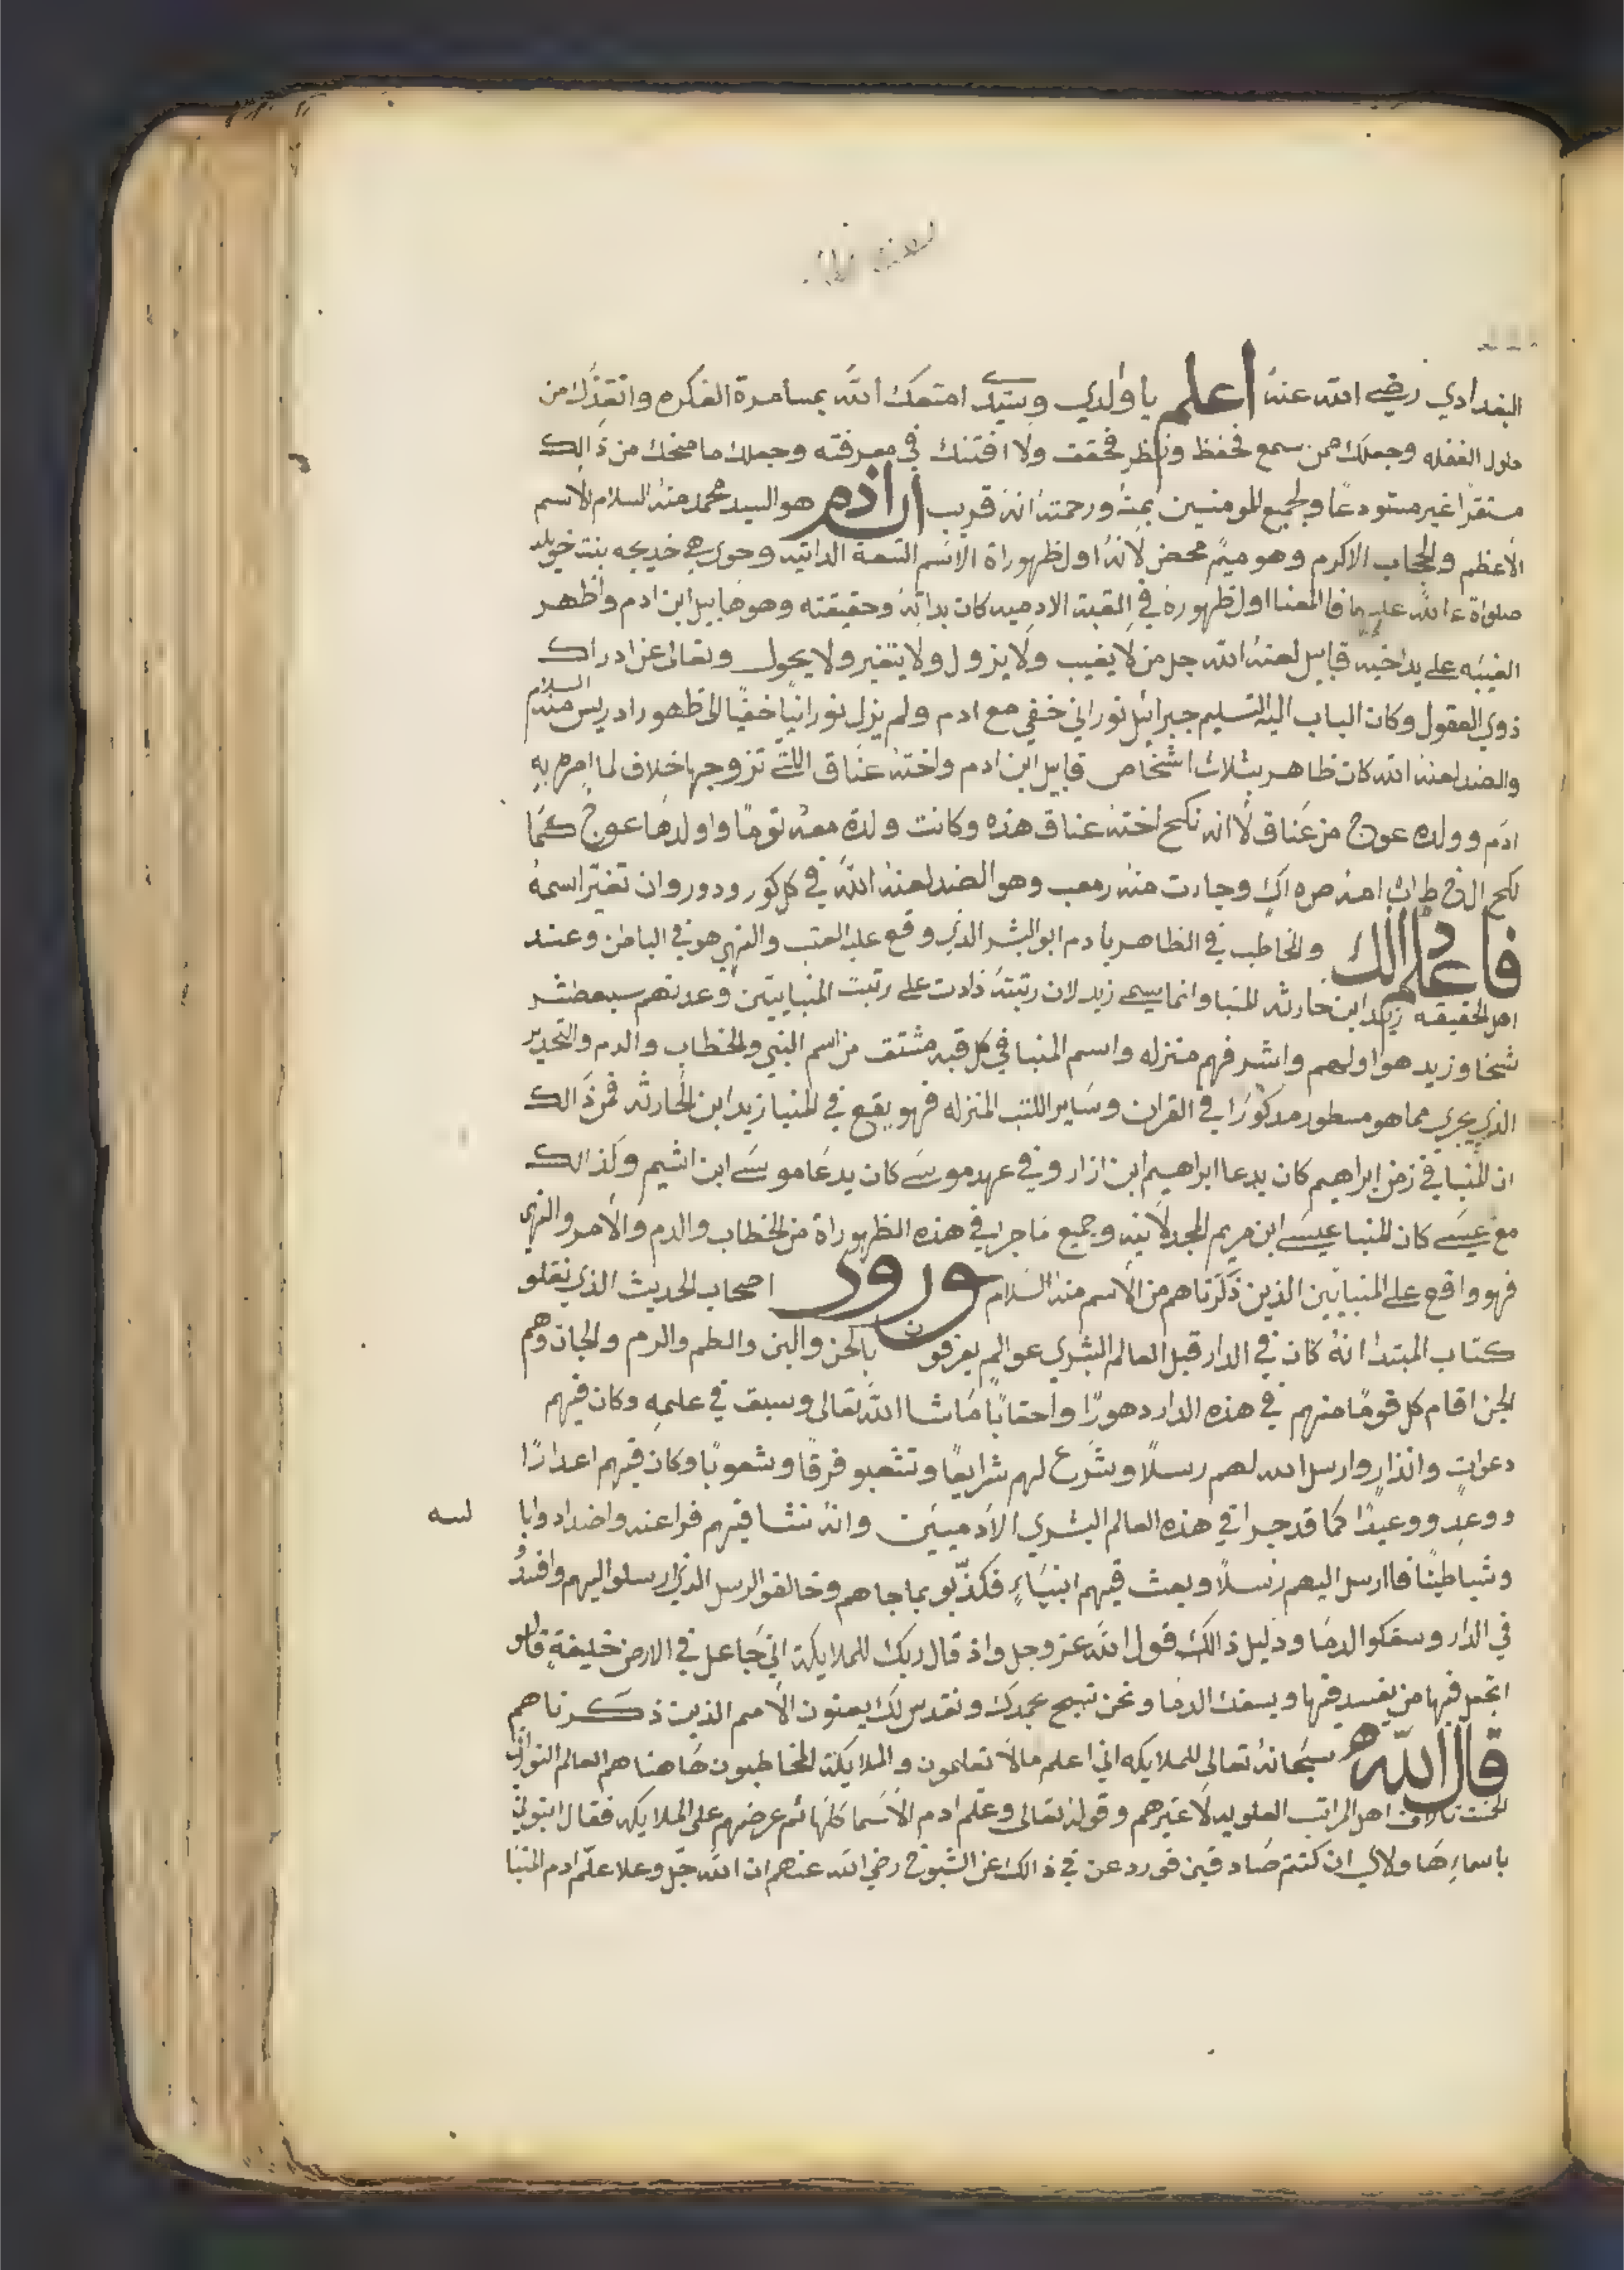 البغدادي رضي الله عنهُ اعلم يا ولدي وسيدي امتعك الله بمسامرة الفكره وانقذك من
حلول الغفله وجعلك ممن سمع فحفظ ونظر فحقق ولا افتنك في معرفته وجعلك ما منحك من ذالك
مستقراً غير مستودعاً ولجميع المومنين بمنهُ ورحمتهُ انهُ قريب ان ادم هو السيد محمد منهُ السلام الاسم
الاعظم والحجاب الاكرم وهو ميم محض لانهُ اول ظهوراة الاسم التسعة الداتيه وحوى هي خديجه بنت خويلد
صلواة الله عليهما فالمعنا اول ظهوره في القبة الادميه كان بداتهُ وحقيقته وهو هابيل ابن ادم واظهر
الغيبه على يد اخيه قابيل لعنهُ الله جل من لا يغيب ولا يزول ولا يتغير ولا يحول وتعالى عن ادراك
ذوي العقول وكان الباب اليه التسليم جبرائيل نوراني خفي مع ادم ولم يزل نورانياً خفياً الى ظهور ادريس منهُ السلام
والضد لعنهُ الله كان ظاهر بثلاث اشخاص قابيل ابن ادم واخته عناق اللتي تزوجها خلاف لما امره به
ادم وولده عوج من عناق لانه نكح اخته عناق هذه وكانت ولدة معهُ توماً واولدها عوج كما
نكح امهُ وجاءت منهُ وهو الضد لعنهُ الله في كل كور ودور وان تغير اسمهُ
فاعلم ذالك والمخاطب في الظاهر يادم ابو البشر الذي وقع عليه العتب والنهي هو في الباطن وعند
اهل الحقيقه زيد ابن حارثه المنبا وانما سمي زيد لان رتبتهُ زادت على رتبت المنبايين وعدتهم سبعطشر
شخا وزيد هو اولهم واشرفهم منزله واسم المنبا في كل قبه مشتق من اسم النبي والخطاب والدم والتحدير
الذي يجري مما هو مسطور مدكوراً في القران وساير الكتب المنزله فهو يقع في المنبا زيد ابن الحارثه فمن ذالك
ان المنبا في زمن ابراهيم كان يدعا ابراهيم ابن ازار وفي عهد موسى كان يدعا موسى ابن اشيم وكذالك
مع عيسى كان المنبا عيسى ابن مريم المجدلانيه وجميع ما جرا في هذه الظهوراة من الخطاب والدم والامر والنهي
فهو واقع على المنبايين الذين ذكرناهم من الاسم منهُ السلام ورود اصحاب الحديث الذي نقلو
كتاب المبتدا انهُ كان في الدار قبل العالم البشري عوالم يعرفون بالحن والبن والطم والرم والجان وهم
الجن اقام كل قوماً منهم في هذه الدار دهوراً واحقاباً ما شا الله تعالى وسبق في علمه وكان فيهم
دعوات وانذار وارسل الله لهم رسلاً وشرع لهم شرايعاً وتشعبو فرقاً وشعوباً وكان فيهم اعداراً
ووعد ووعيداً كما قد جرا في هذه العالم البشري الادميين وانهُ نشا فيهم فراعنه واضداد وابا لسه
وشياطيناً فاارسل اليهم رسلاً وبعث فيهم انبياءٍ فكذبو بما جاهم وخالفو الرسل الذي ارسلو اليهم وافسدُو
في الدار وسفكو الدما ودليل ذالك قول الله عز وجل واذ قال ربك للملايكه اني جاعل في الارض خليفةٍ قالو
اتجعل فيها من يفسد فيها ويسفك الدما ونحن نسبح بحمدك ونقدس لك يعنون الامم الذين ذكرناهم
قال الله سبحانهُ تعالى للملايكه اني اعلم مالا تعلمون والملايكة المخاطبون هاهنا هم العالم النوراني
اهل المراتب العلويه لا غيرهم وقوله تعالى وعلم ادم الاسما كلها ثم عرضهم على الملايكه فقال انبوني
باسماء هاولاي ان كنتم صادقين فورد عن في ذالك عن الشيوخ رضي الله عنهم ان الله جل وعلا علم ادم المنبا